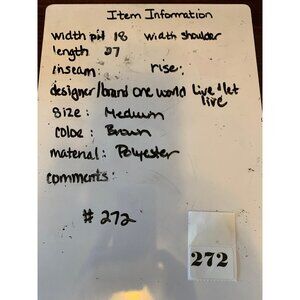 Item Information
width pit 18 width shoulder
length 27
inseam: rise:
designer/brand one world Live & let
live
Size: Medium
Color: Brown
material: Polyester
comments:
# 272
272